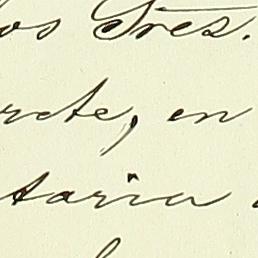 os Sres.
rete, en
taria